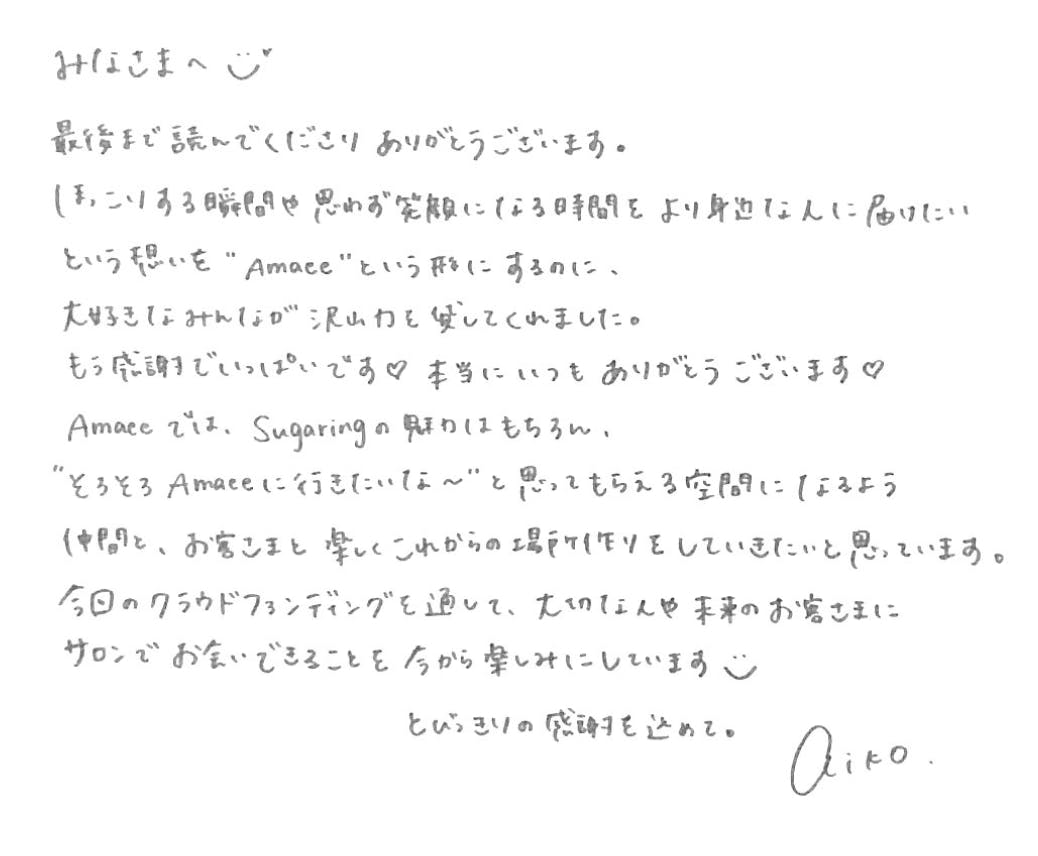 みなさまへ
最後まで読んでくださりありがとうございます。
ほっこりする瞬間や思わず笑顔になる時間をより身近な人に届けたい
という想いを"Amaee"という形にするのに、
大好きなみんなが沢山力を貸してくれました。
もう感謝でいっぱいです♡ 本当にいつもありがとうございます♡
Amaeeでは、Sugaringの魅力はもちろん、
"そろそろAmaeeに行きたいな〜"と思ってもらえる空間になるよう
仲間と、お客さまと楽しくこれからの場所作りをしていきたいと思っています。
今回のクラウドファンディングを通して、大切な人や未来のお客さまに
サロンでお会いできることを今から楽しみにしています
とびっきりの感謝を込めて。
Aiko.